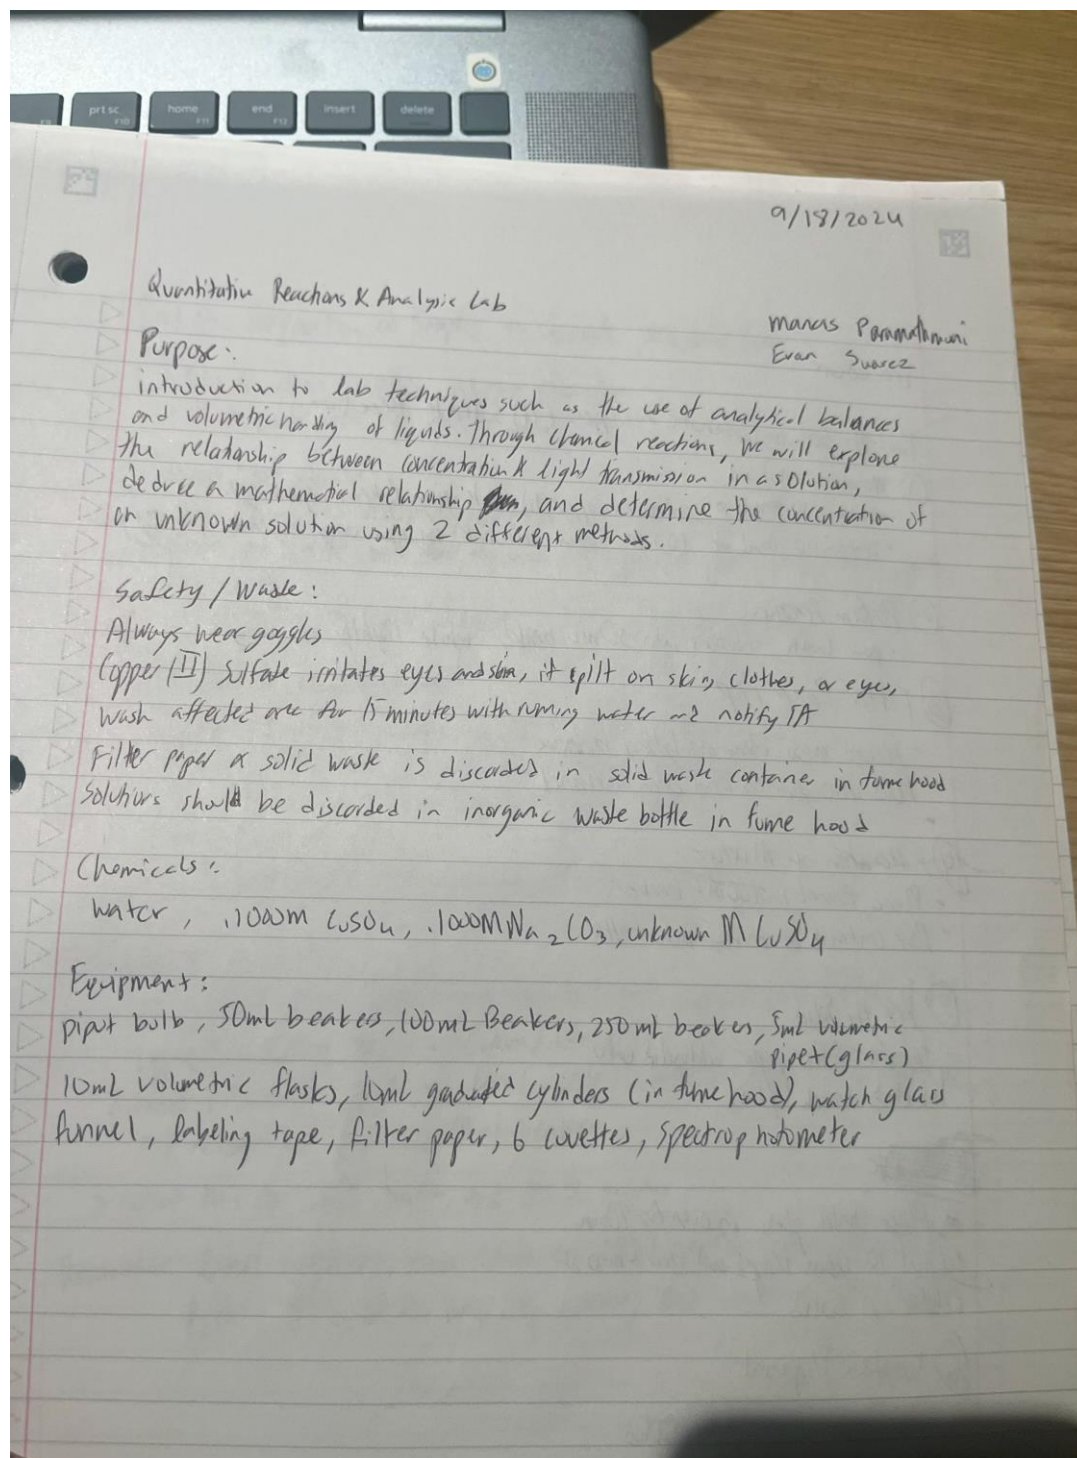 prt sc
F10
home
F11
end
F12
insert
delete
9/18/2024
Quantitative Reactions & Analysis Lab
Manas
Evan Suarez
Purpose:
introduction to lab techniques such as the use of analytical balances
and volumetric handling of liquids. Through chemical reactions, we will explore
the relationship between concentration & light transmission in a solution,
deduce a mathematical relationship, and determine the concentration of
an unknown solution using 2 different methods.
Safety / Waste:
Always wear goggles
Copper (II) Sulfate irritates eyes and skin, if spilt on skin, clothes, or eyes,
wash affected area for 15 minutes with running water and notify TA
Filter paper & solid waste is discarded in solid waste container in fume hood
Solutions should be discarded in inorganic waste bottle in fume hood
Chemicals:
water, .1000M CuSO4, .1000M Na2CO3, unknown M CuSO4
Equipment:
pipet bulb, 50mL beakers, 100mL Beakers, 250mL beakers, 5mL volumetric
pipet (glass)
10mL volumetric flasks, 10mL graduated cylinders (in fume hood), watch glass
funnel, labeling tape, filter paper, 6 cuvettes, spectrophotometer